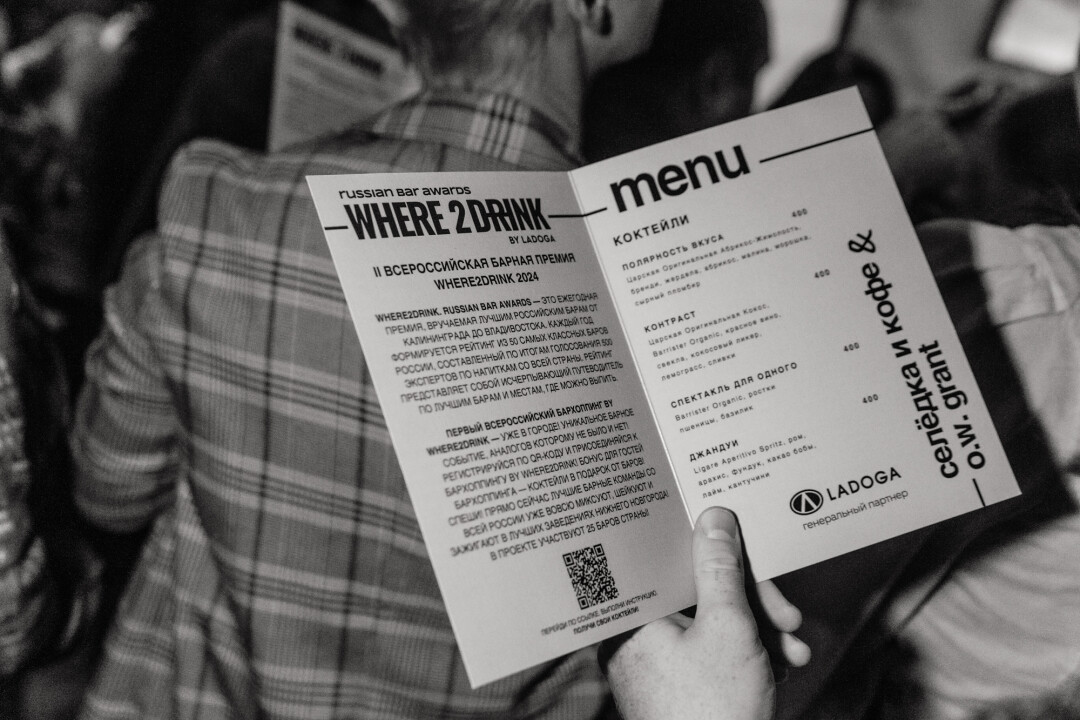 russian bar awards
WHERE 2 DRINK
BY LADOGA
II ВСЕРОССИЙСКАЯ БАРНАЯ ПРЕМИЯ
WHERE2DRINK 2024
WHERE2DRINK. RUSSIAN BAR AWARDS — ЭТО ЕЖЕГОДНАЯ
ПРЕМИЯ, ВРУЧАЕМАЯ ЛУЧШИМ РОССИЙСКИМ БАРАМ ОТ
КАЛИНИНГРАДА ДО ВЛАДИВОСТОКА. КАЖДЫЙ ГОД
ФОРМИРУЕТСЯ РЕЙТИНГ ИЗ 50 САМЫХ КЛАССНЫХ БАРОВ
РОССИИ, СОСТАВЛЕННЫЙ ПО ИТОГАМ ГОЛОСОВАНИЯ 500
ЭКСПЕРТОВ ПО НАПИТКАМ СО ВСЕЙ СТРАНЫ. РЕЙТИНГ
ПРЕДСТАВЛЯЕТ СОБОЙ ИСЧЕРПЫВАЮЩИЙ ПУТЕВОДИТЕЛЬ
ПО ЛУЧШИМ БАРАМ И МЕСТАМ, ГДЕ МОЖНО ВЫПИТЬ.
ПЕРВЫЙ ВСЕРОССИЙСКИЙ БАРХОППИНГ BY
WHERE2DRINK — УЖЕ В ГОРОДЕ! УНИКАЛЬНОЕ БАРНОЕ
СОБЫТИЕ, АНАЛОГОВ КОТОРОМУ НЕ БЫЛО И НЕТ!
РЕГИСТРИРУЙСЯ ПО QR-КОДУ И ПРИСОЕДИНЯЙСЯ К
БАРХОППИНГУ BY WHERE2DRINK! БОНУС ДЛЯ ГОСТЕЙ
БАРХОППИНГА — КОКТЕЙЛИ В ПОДАРОК ОТ БАРОВ!
СПЕШИ! ПРЯМО СЕЙЧАС ЛУЧШИЕ БАРНЫЕ КОМАНДЫ СО
ВСЕЙ РОССИИ УЖЕ ВОВСЮ МИКСУЮТ, ШЕЙКУЮТ И
ЗАЖИГАЮТ В ЛУЧШИХ ЗАВЕДЕНИЯХ НИЖНЕГО НОВГОРОДА!
В ПРОЕКТЕ УЧАСТВУЮТ 25 БАРОВ СТРАНЫ!
ПЕРЕЙДИ ПО ССЫЛКЕ, ВЫПОЛНИ ИНСТРУКЦИЮ,
ПОЛУЧИ СВОИ КОКТЕЙЛИ!
menu
КОКТЕЙЛИ
ПОЛЯРНОСТЬ ВКУСА 400
Царская Оригинальная Абрикос-Жимолость,
бренди, жардела, абрикос, малина, морошка,
сырный пломбир
КОНТРАСТ 400
Царская Оригинальная Кокос,
Barrister Organic, красное вино,
свекла, кокосовый ликёр,
лемограсс, сливки
СПЕКТАКЛЬ ДЛЯ ОДНОГО 400
Barrister Organic, ростки
пшеницы, базилик
ДЖАНДУИ 400
Ligare Aperitivo Spritz, ром,
арахис, фундук, какао бобы,
лайм, кантучини
LADOGA
генеральный партнер
селёдка и кофе &
o.w. grant